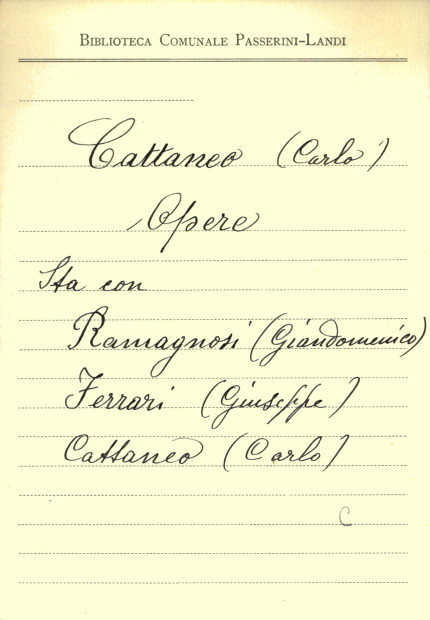 BIBLIOTECA COMUNALE PASSERINI-LANDI
Cattaneo (Carlo)
Opere
Sta con
Ramagnosi (Giandomenico)
Ferrari (Giuseppe)
Cattaneo (Carlo)
C